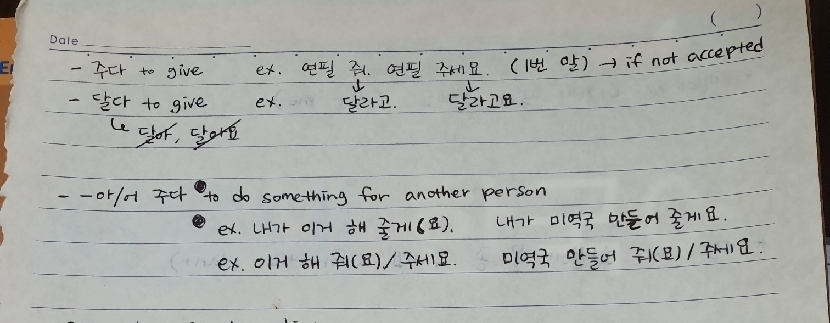 ( )
Date
- 주다 to give ex. 연필 줘. 연필 주세요. (1번 말) → if not accepted
- 달다 to give ex. 달라고. 달라고요.
↳ 달아, 달아요
- -아/어 주다 to do something for another person
ex. 내가 이거 해 줄게(요). 내가 미역국 만들어 줄게요.
ex. 이거 해 줘(요)/주세요. 미역국 만들어 줘(요)/주세요.